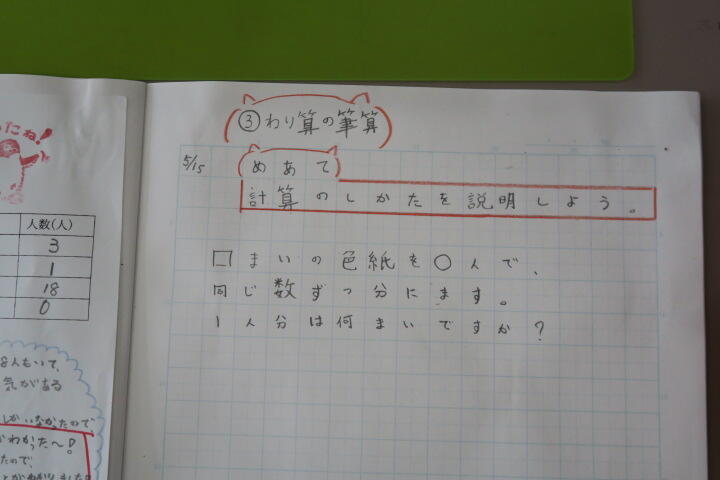 ③わり算の筆算
5/15
めあて
計算のしかたを説明しよう。
□まいの色紙を○人で、
同じ数ずつ分にます。
1人分は何まいですか?
たね!
人数(人)
3
1
18
0
8人もいて、
気がある
しかいなかったので、
わかった〜!
たので、